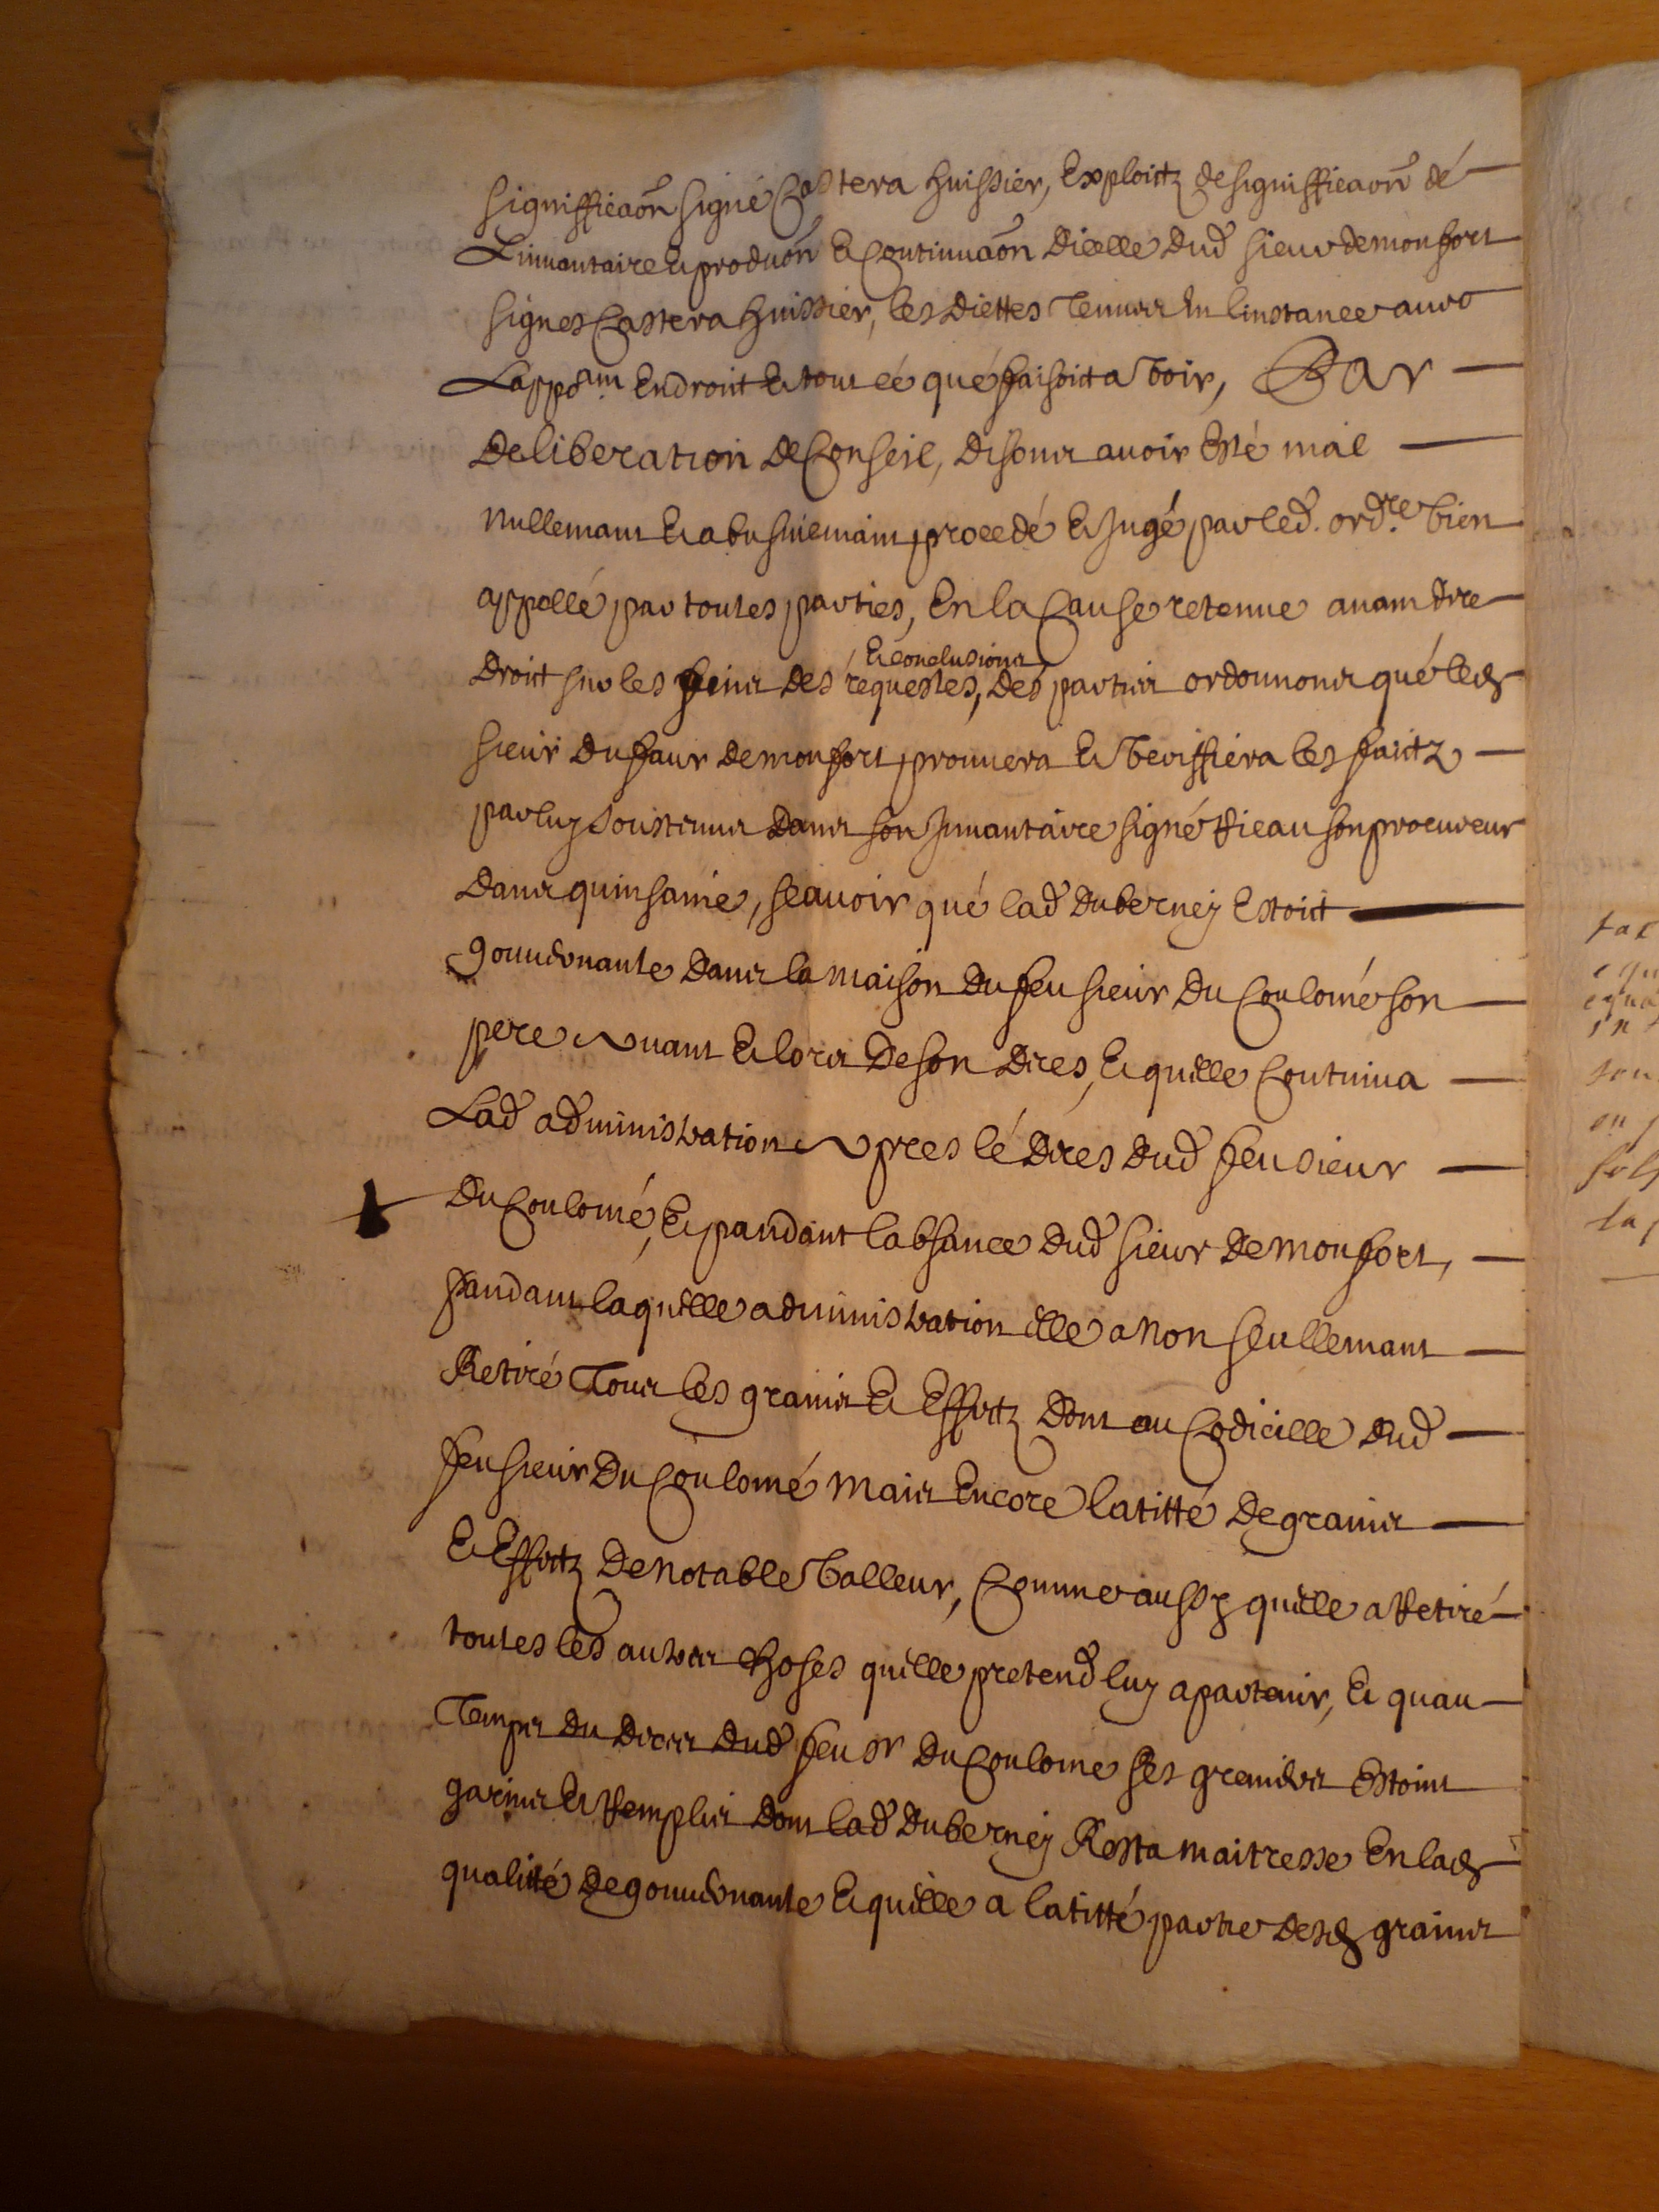 signifficaon signé Castera huissier, Exploictz de signifficaon dé
Linuantaire et produon et Continuaon dicelle dud sieur de monfort
signes Castera huissier, les diettes tenues en linstance auec
Lappoinm En droit et tout cé qué faisoict a voir, Par
deliberation de Conseil, disons auoir esté mal
nullemant et abusiuemant procedé et Jugé par led. ordre bien
appellé par toutes parties, En la Cause retenue auant dire
droit sur les fins des requestes, et conclusions des parties ordonnons qué led
sieur dufaur de monfort prouuera et veriffiera les faictz
par luy soustenus dans son Jnuantaire signé Rieau son procureur
dans quinsaine, scauoir qué lad duberney Estoict
gouuernante dans la maison du feu sieur du Coulomé son
pere Auant et lors de son dices, et quelle Continua
Lad administration Apres lé dices dud feu sieur
du Coulomé, et pandant labsance dud sieur de monfort,
pandant laquelle administration elle a non seullemant
Retiré tous les grains et Effectz dont au Codicille dud
feu sieur du Coulomé mais Encore latitté de grains
et Effectz de notable valleur, Comme aussy quelle a Retiré
toutes les autres choses quelle pretend luy apartenir, et quau
temps du dices dud feu sr du Coulome ses greniers Estoint
garnis et Remplis dont lad duberney Resta maitresse En lad
qualitté de gouuernante et quelle a latitté partie desd grains